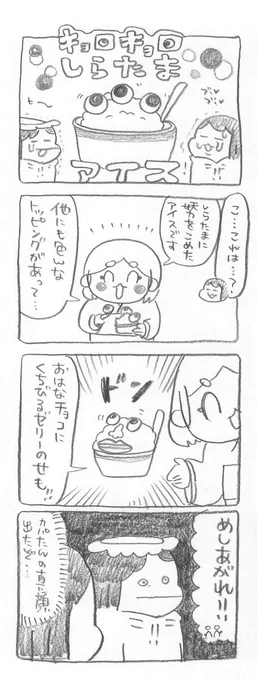 キョロキョロ
しらたま
アイス
こ…これは…?
しらたまに
妖力をこめた
アイスです
他にも色々な
トッピングがあって…
ドン
おはなチョコに
くちびるゼリーのせも!!
めしあがれ!!
カパたんの真に顔、
出たぞ…